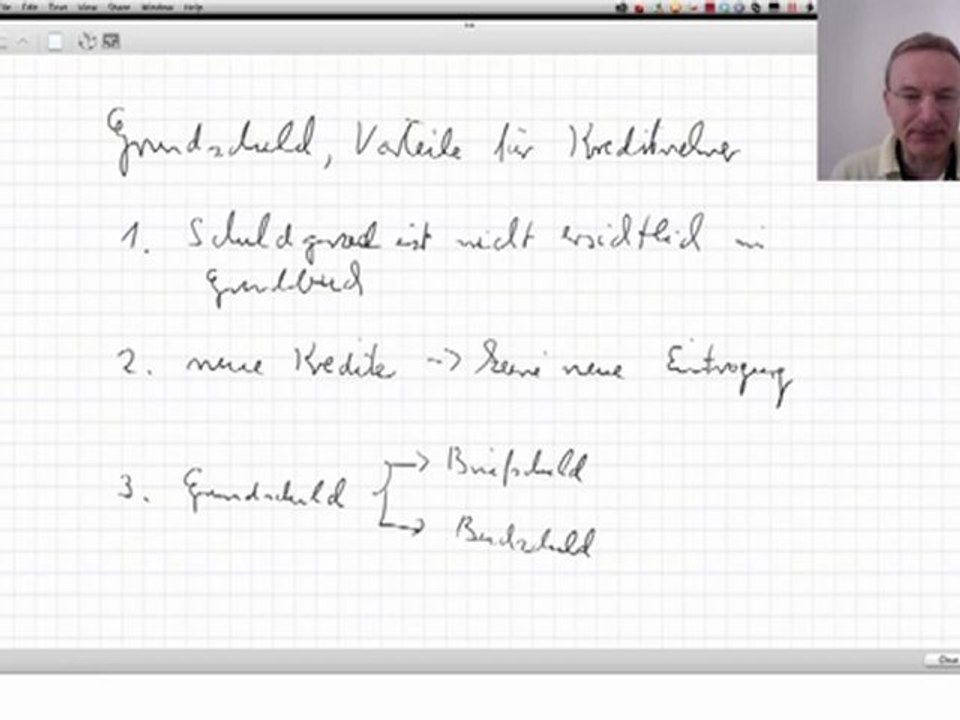 File Edit Tools View Share Window Help
Grundschuld, Vorteile für Kreditnehmer
1. Schuldgrad ist nicht ersichtlich im
Grundbuch
2. neue Kredite -> keine neue Eintragung
3. Grundschuld -> Briefschuld
-> Buchschuld
Clear